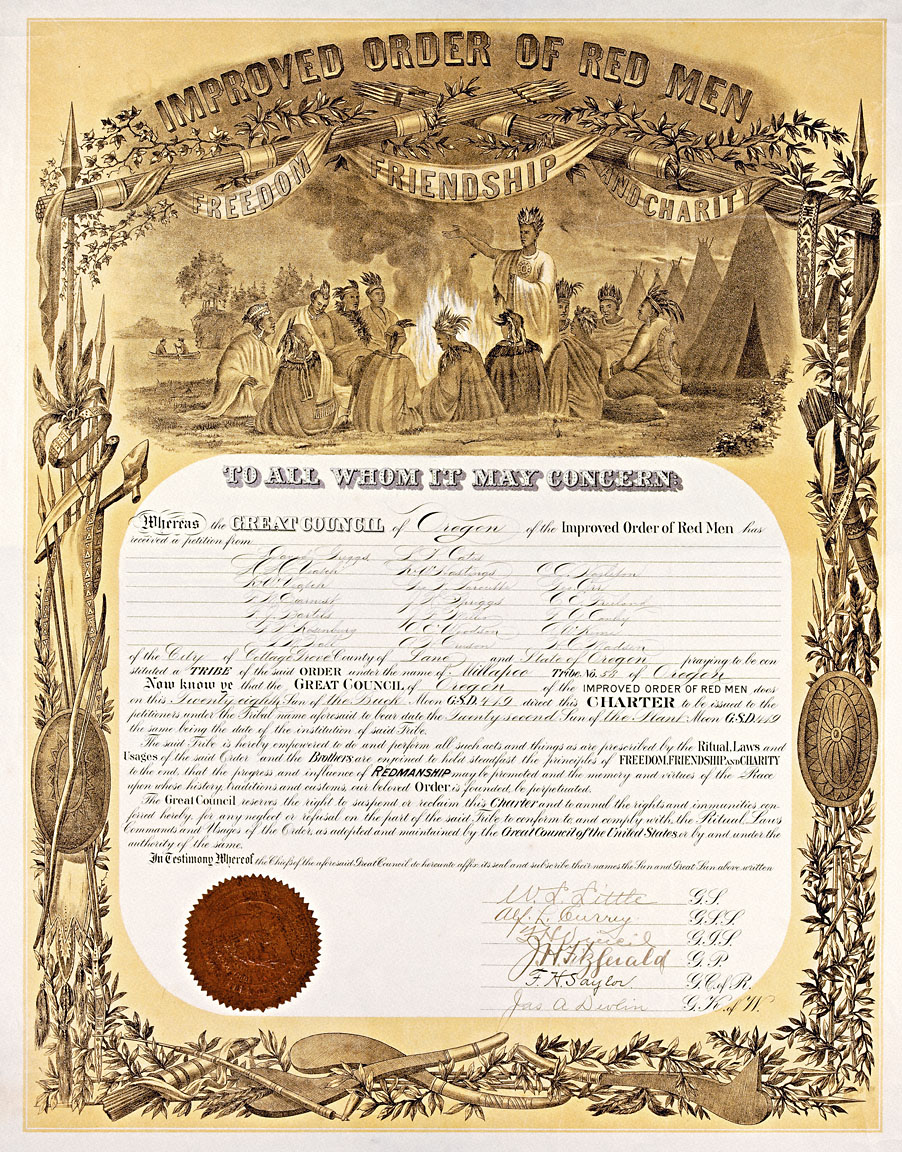 IMPROVED ORDER OF RED MEN
FREEDOM FRIENDSHIP AND CHARITY
TO ALL WHOM IT MAY CONCERN:
Whereas the GREAT COUNCIL of Oregon of the Improved Order of Red Men has
received a petition from
Spriggs
Hastings
Veatch
Spriggs
Bartels
Rosenburg Woodson
of the City of Cottage Grove County of Lane and State of Oregon praying to be con-
stituted a TRIBE of the said ORDER under the name of Tribe No. 58 of Oregon
Now know ye that the GREAT COUNCIL of Oregon of the IMPROVED ORDER OF RED MEN does
on this Twenty eighth Sun of the Buck Moon G.S.D. 419 direct this CHARTER to be issued to the
petitioners under the Tribal name aforesaid to bear date the Twenty second Sun of the Plant Moon G.S.D. 419
the same being the date of the institution of said Tribe.
The said Tribe is hereby empowered to do and perform all such acts and things as are prescribed by the Ritual, Laws and
Usages of the said Order and the Brothers are enjoined to hold steadfast the principles of FREEDOM, FRIENDSHIP AND CHARITY
to the end, that the progress and influence of REDMANSHIP may be promoted and the memory and virtues of the Race
upon whose history, traditions and customs, our beloved Order is founded, be perpetuated.
The Great Council reserves the right to suspend or reclaim this Charter and to annul the rights and immunities con-
fered hereby, for any neglect or refusal on the part of the said Tribe to conform to and comply with, the Ritual, Laws
Commands and Usages of the Order, as adopted and maintained by the Great Council of the United States or by and under the
authority of the same.
In Testimony Whereof the Chiefs of the aforesaid Great Council do hereunto affix its seal and subscribe their names the Sun and Great Sun above written
W. L. Little G.S.
Alf. L. Currey G.S.S.
G.J.S.
J. H. Fitzgerald G.P.
F. H. Saylor. G.C. of R.
Jas A Devlin G.K. of W.